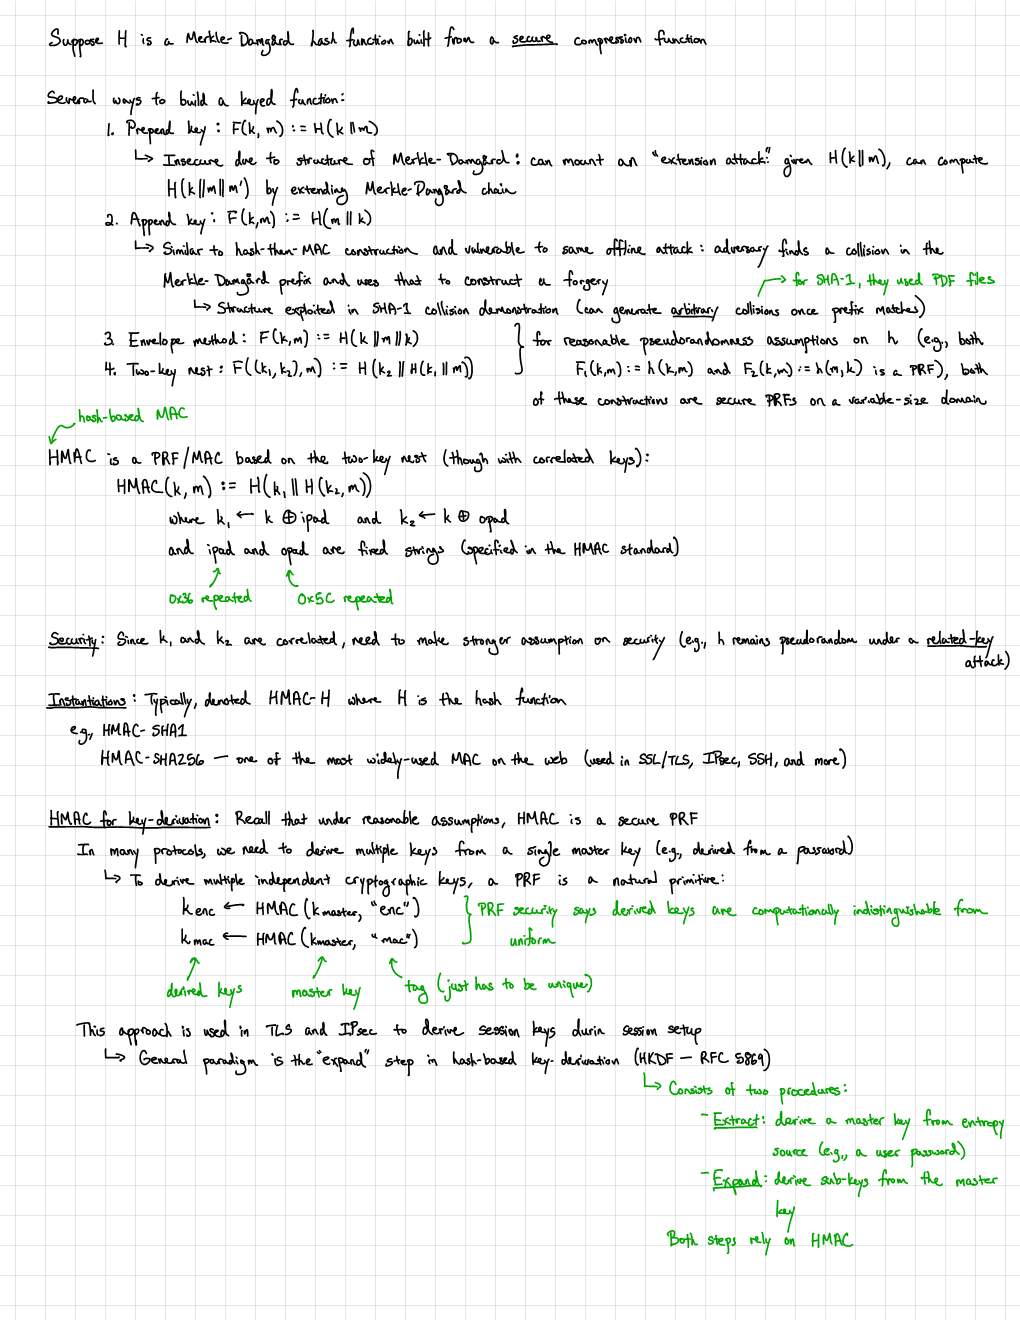 Suppose H is a Merkle-Damgård hash function built from a secure compression function
Several ways to build a keyed function:
1. Prepend key: F(k, m) := H(k ‖ m)
↳ Insecure due to structure of Merkle-Damgård: can mount an "extension attack:" given H(k‖m), can compute
H(k‖m‖m') by extending Merkle-Damgård chain
2. Append key: F(k,m) := H(m ‖ k)
↳ Similar to hash-then-MAC construction and vulnerable to same offline attack: adversary finds a collision in the
Merkle-Damgård prefix and uses that to construct a forgery
→ for SHA-1, they used PDF files
↳ Structure exploited in SHA-1 collision demonstration (can generate arbitrary collisions once prefix matches)
3. Envelope method: F(k,m) := H(k ‖ m ‖ k)
4. Two-key nest: F((k₁,k₂), m) := H(k₂ ‖ H(k₁ ‖ m))
} for reasonable pseudorandomness assumptions on h (e.g., both
F₁(k,m) := h(k,m) and F₂(k,m) := h(m,k) is a PRF), both
of these constructions are secure PRFs on a variable-size domain
hash-based MAC
HMAC is a PRF/MAC based on the two-key nest (though with correlated keys):
HMAC(k, m) := H(k₁ ‖ H(k₂, m))
where k₁ ← k ⊕ ipad and k₂ ← k ⊕ opad
and ipad and opad are fixed strings (specified in the HMAC standard)
0x36 repeated 0x5C repeated
Security: Since k₁ and k₂ are correlated, need to make stronger assumption on security (e.g., h remains pseudorandom under a related-key
attack)
Instantiations: Typically, denoted HMAC-H where H is the hash function
e.g., HMAC-SHA1
HMAC-SHA256 — one of the most widely-used MAC on the web (used in SSL/TLS, IPsec, SSH, and more)
HMAC for key-derivation: Recall that under reasonable assumptions, HMAC is a secure PRF
In many protocols, we need to derive multiple keys from a single master key (e.g., derived from a password)
↳ To derive multiple independent cryptographic keys, a PRF is a natural primitive:
k_enc ← HMAC(k_master, "enc")
k_mac ← HMAC(k_master, "mac")
} PRF security says derived keys are computationally indistinguishable from
uniform
derived keys master key tag (just has to be unique)
This approach is used in TLS and IPsec to derive session keys durin session setup
↳ General paradigm is the "expand" step in hash-based key-derivation (HKDF — RFC 5869)
↳ Consists of two procedures:
- Extract: derive a master key from entropy
source (e.g., a user password)
- Expand: derive sub-keys from the master
key
Both steps rely on HMAC